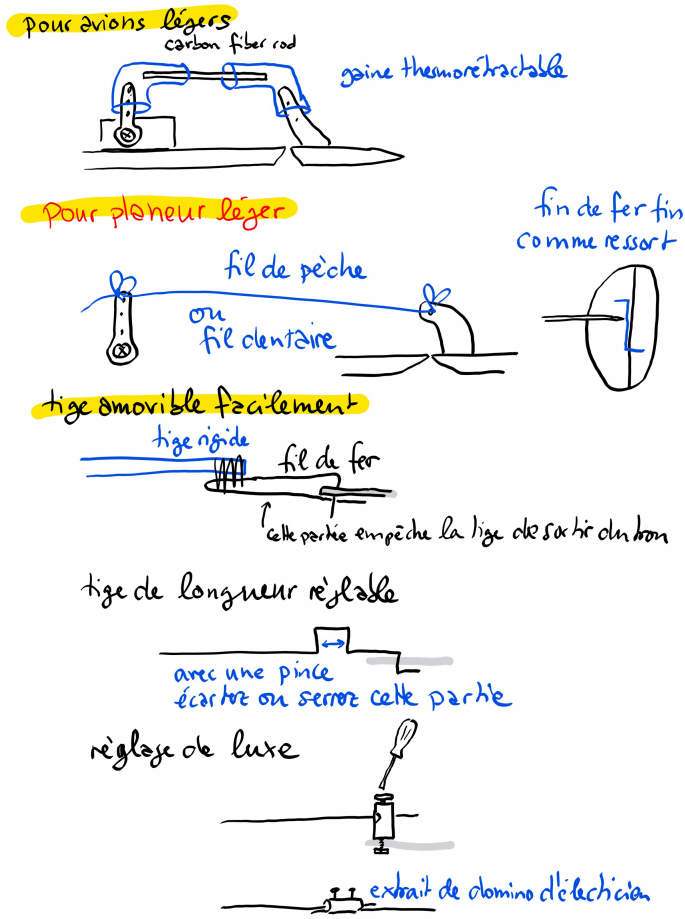 pour avions légers
carbon fiber rod
gaine thermorétractable
pour planeur léger
fin de fer fin
comme ressort
fil de pèche
ou
fil dentaire
tige amovible facilement
tige rigide
fil de fer
cette partée empêche la tige de sortir du trou
tige de longueur réglable
avec une pince
écartez ou serrez cette partie
règlage de luxe
extrait de domino d'électicien